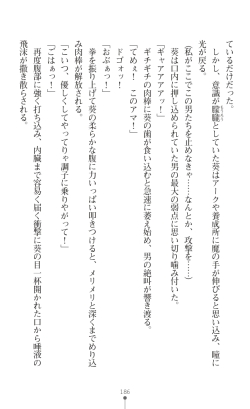 ているだけだった。
しかし、意識が朦朧としていた葵はアークや養成所に魔の手が伸びると思い込み、瞳に
光が戻る。
(私がここでこの男たちを止めなきゃ……なんとか、攻撃を……)
葵は口内に押し込められていた男の最大の弱点に思い切り噛み付いた。
「ギャアアアアッ！」
ギチギチの肉棒に葵の歯が食い込むと急速に萎え始め、男の絶叫が響き渡る。
「てめぇ！　このアマ！」
ドゴォッ！
「おぶぁっ！」
拳を振り上げて葵の柔らかな腹に力いっぱい叩きつけると、メリメリと深くまでめり込
み肉棒が解放される。
「こいつ、優しくしてやってりゃ調子に乗りやがって！」
「ごはぁっ！」
再度腹部に強く打ち込み、内臓まで容易く届く衝撃に葵の目一杯開かれた口から唾液の
飛沫が撒き散らされる。
186